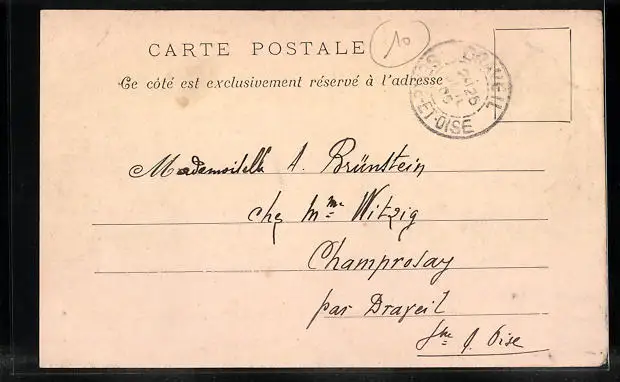 CARTE POSTALE
10
Ce côté est exclusivement réservé à l'adresse
DRAVEIL
ET-OISE
Mademoiselle A. Brünstein
chez Mme Witzig
Champrosay
par Draveil
Sne & Oise